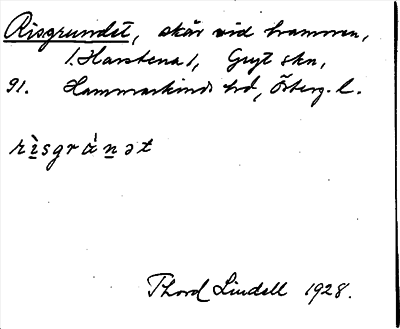 Risgrundet, skär vid hamnen,
(Harstena), Gryt skn,
91. Hammarkinds hd, Österg. l.
rìsgránət
Thord Lindell 1928.